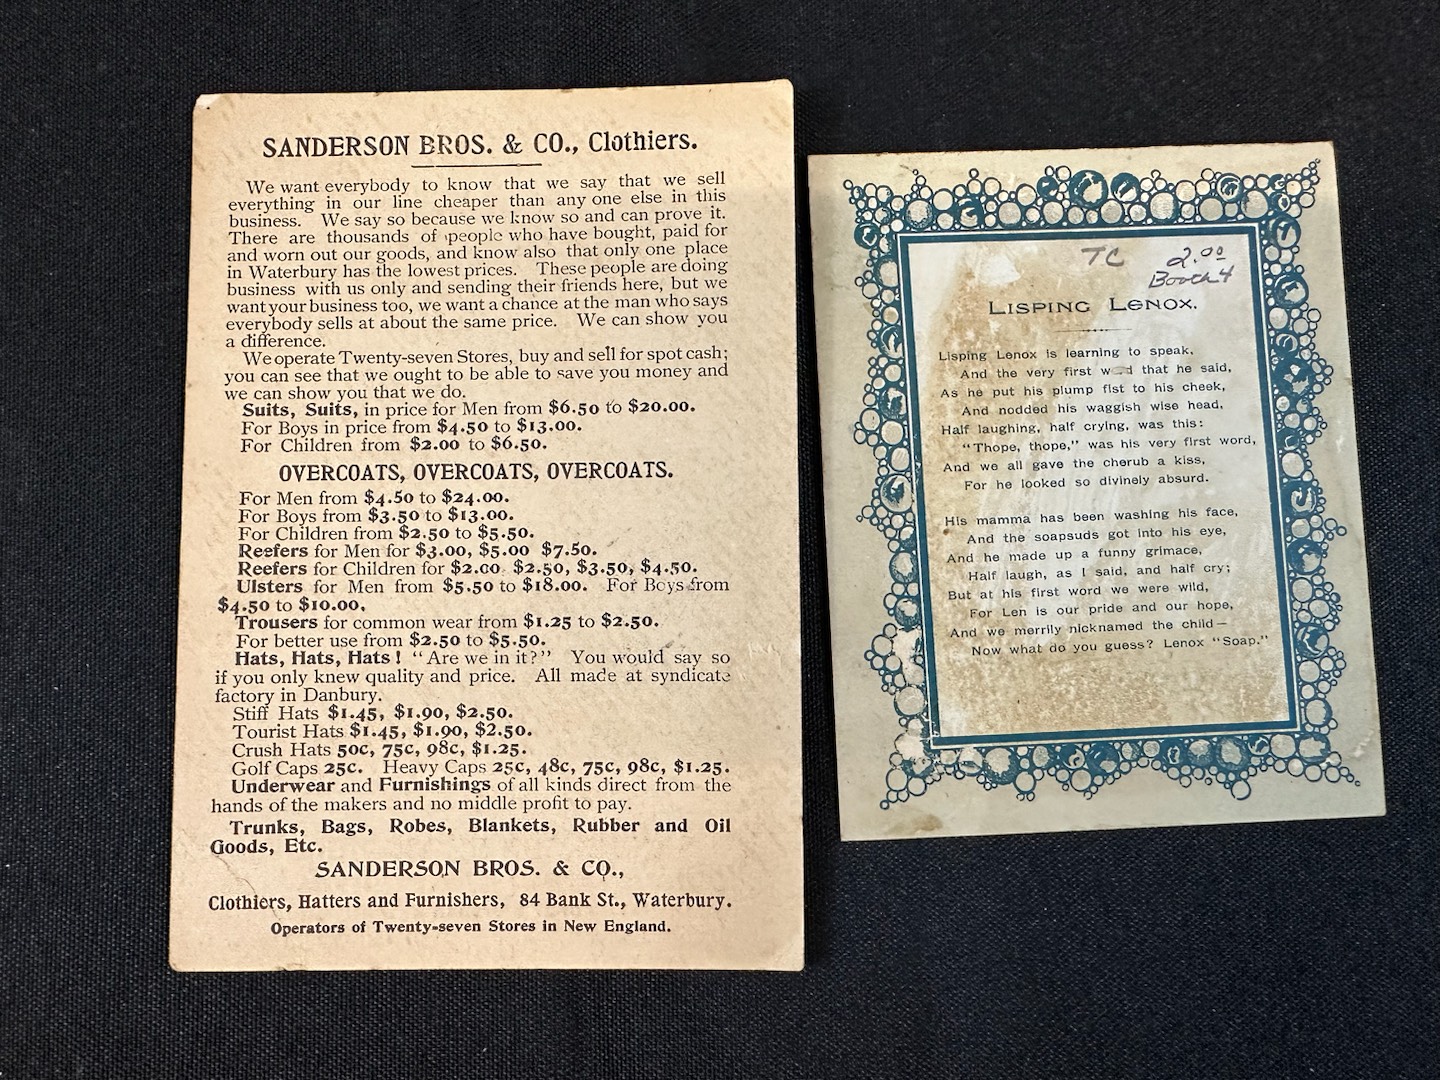 SANDERSON BROS. & CO., Clothiers.
We want everybody to know that we say that we sell
everything in our line cheaper than any one else in this
business. We say so because we know so and can prove it.
There are thousands of people who have bought, paid for
and worn out our goods, and know also that only one place
in Waterbury has the lowest prices. These people are doing
business with us only and sending their friends here, but we
want your business too, we want a chance at the man who says
everybody sells at about the same price. We can show you
a difference.
We operate Twenty-seven Stores, buy and sell for spot cash;
you can see that we ought to be able to save you money and
we can show you that we do.
Suits, Suits, in price for Men from $6.50 to $20.00.
For Boys in price from $4.50 to $13.00.
For Children from $2.00 to $6.50.
OVERCOATS, OVERCOATS, OVERCOATS.
For Men from $4.50 to $24.00.
For Boys from $3.50 to $13.00.
For Children from $2.50 to $5.50.
Reefers for Men for $3.00, $5.00 $7.50.
Reefers for Children for $2.00 $2.50, $3.50, $4.50.
Ulsters for Men from $5.50 to $18.00. For Boys from
$4.50 to $10.00,
Trousers for common wear from $1.25 to $2.50.
For better use from $2.50 to $5.50.
Hats, Hats, Hats! "Are we in it?" You would say so
if you only knew quality and price. All made at syndicate
factory in Danbury.
Stiff Hats $1.45, $1.90, $2.50.
Tourist Hats $1.45, $1.90, $2.50.
Crush Hats 50c, 75c, 98c, $1.25.
Golf Caps 25c. Heavy Caps 25c, 48c, 75c, 98c, $1.25.
Underwear and Furnishings of all kinds direct from the
hands of the makers and no middle profit to pay.
Trunks, Bags, Robes, Blankets, Rubber and Oil
Goods, Etc.
SANDERSON BROS. & CO.,
Clothiers, Hatters and Furnishers, 84 Bank St., Waterbury.
Operators of Twenty-seven Stores in New England.
TC 2.00
Booth 4
LISPING LENOX.
Lisping Lenox is learning to speak,
And the very first word that he said,
As he put his plump fist to his cheek,
And nodded his waggish wise head,
Half laughing, half crying, was this:
"Thope, thope," was his very first word,
And we all gave the cherub a kiss,
For he looked so divinely absurd.
His mamma has been washing his face,
And the soapsuds got into his eye,
And he made up a funny grimace,
Half laugh, as I said, and half cry;
But at his first word we were wild,
For Len is our pride and our hope,
And we merrily nicknamed the child—
Now what do you guess? Lenox "Soap."